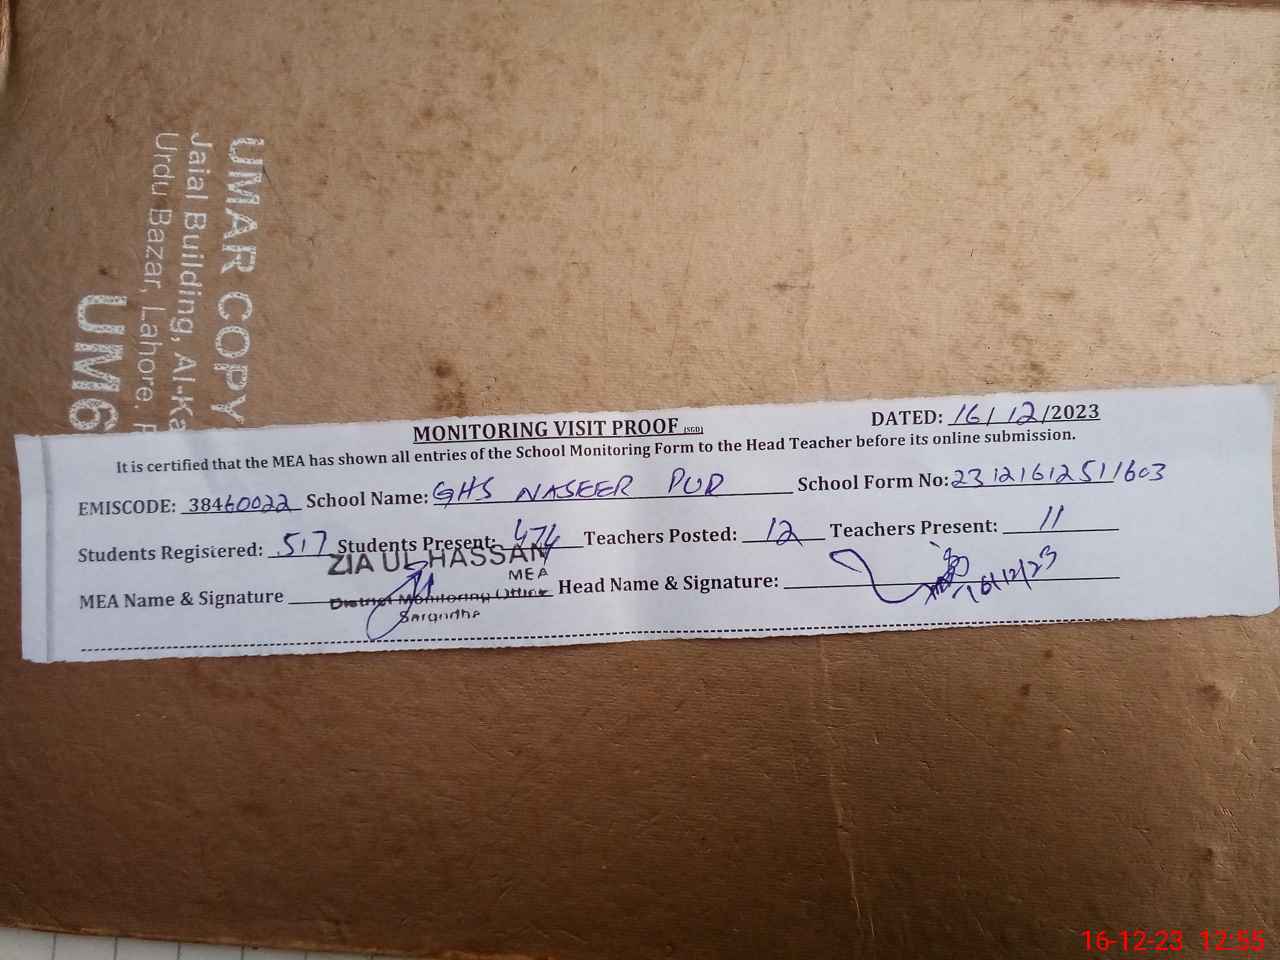 UMAR COPY
Jalal Building, Al-Ka
Urdu Bazar, Lahore.
UM6
MONITORING VISIT PROOF (SGD)
DATED: 16/12/2023
It is certified that the MEA has shown all entries of the School Monitoring Form to the Head Teacher before its online submission.
EMISCODE: 38460022 School Name: GHS NASEER PUR School Form No: 23121612511603
Students Registered: 517 Students Present: 474 Teachers Posted: 12 Teachers Present: 11
ZIA UL HASSAN
MEA
MEA Name & Signature Head Name & Signature: 16/12/23
District Monitoring Office
Sargodha
16-12-23 12:55